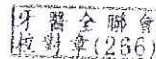 牙醫全聯會
校對章(266)